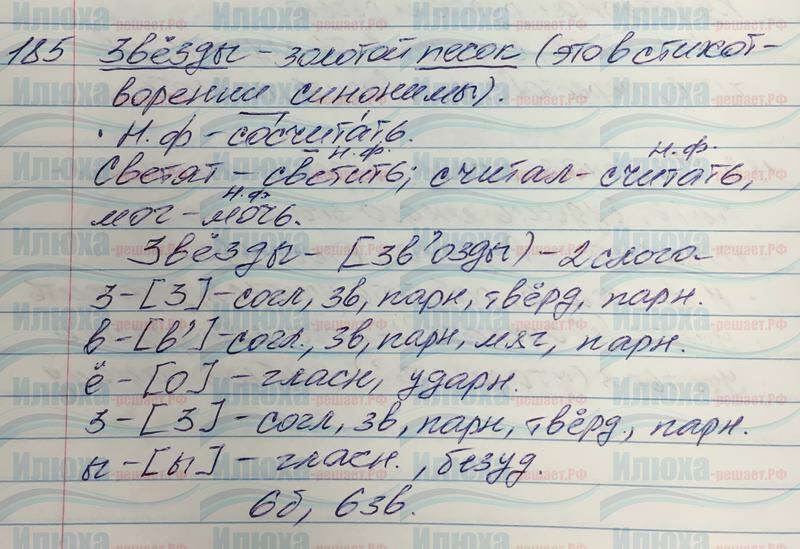 185 Звёзды - золотой песок (это в стихот-
ворении синонимы).
• Н.ф - сосчитать.
н.ф. н.ф.
Светят - светить; считал - считать,
н.ф.
мог - мочь.
Звёзды - [зв'озды) - 2 слога
з - [з] - согл, зв, парн, твёрд, парн.
в - [в'] - согл., зв, парн, мяг, парн.
ё - [о] - гласн, ударн.
з - [з] - согл, зв, парн, твёрд., парн.
ы - [ы] - гласн., безуд.
6б, 6зв.
Илюха-решает.РФ